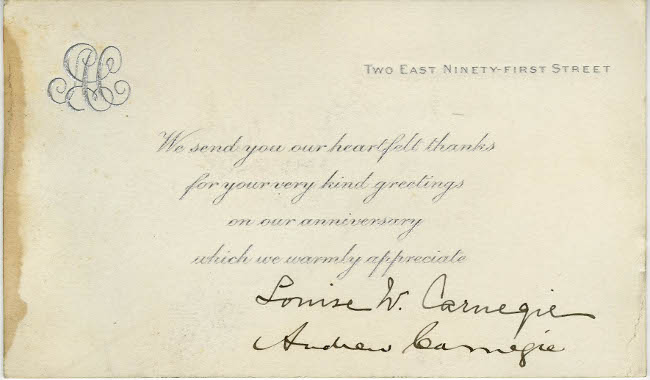 TWO EAST NINETY-FIRST STREET
We send you our heartfelt thanks
for your very kind greetings
on our anniversary
which we warmly appreciate
Louise W. Carnegie
Andrew Carnegie